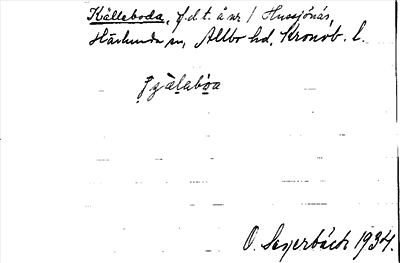 Källeboda, f.d.t. å nr 1 Hussjönäs,
Härlunda sn, Allbo hd, Kronob. l.
O. Sagerbäck 1934.